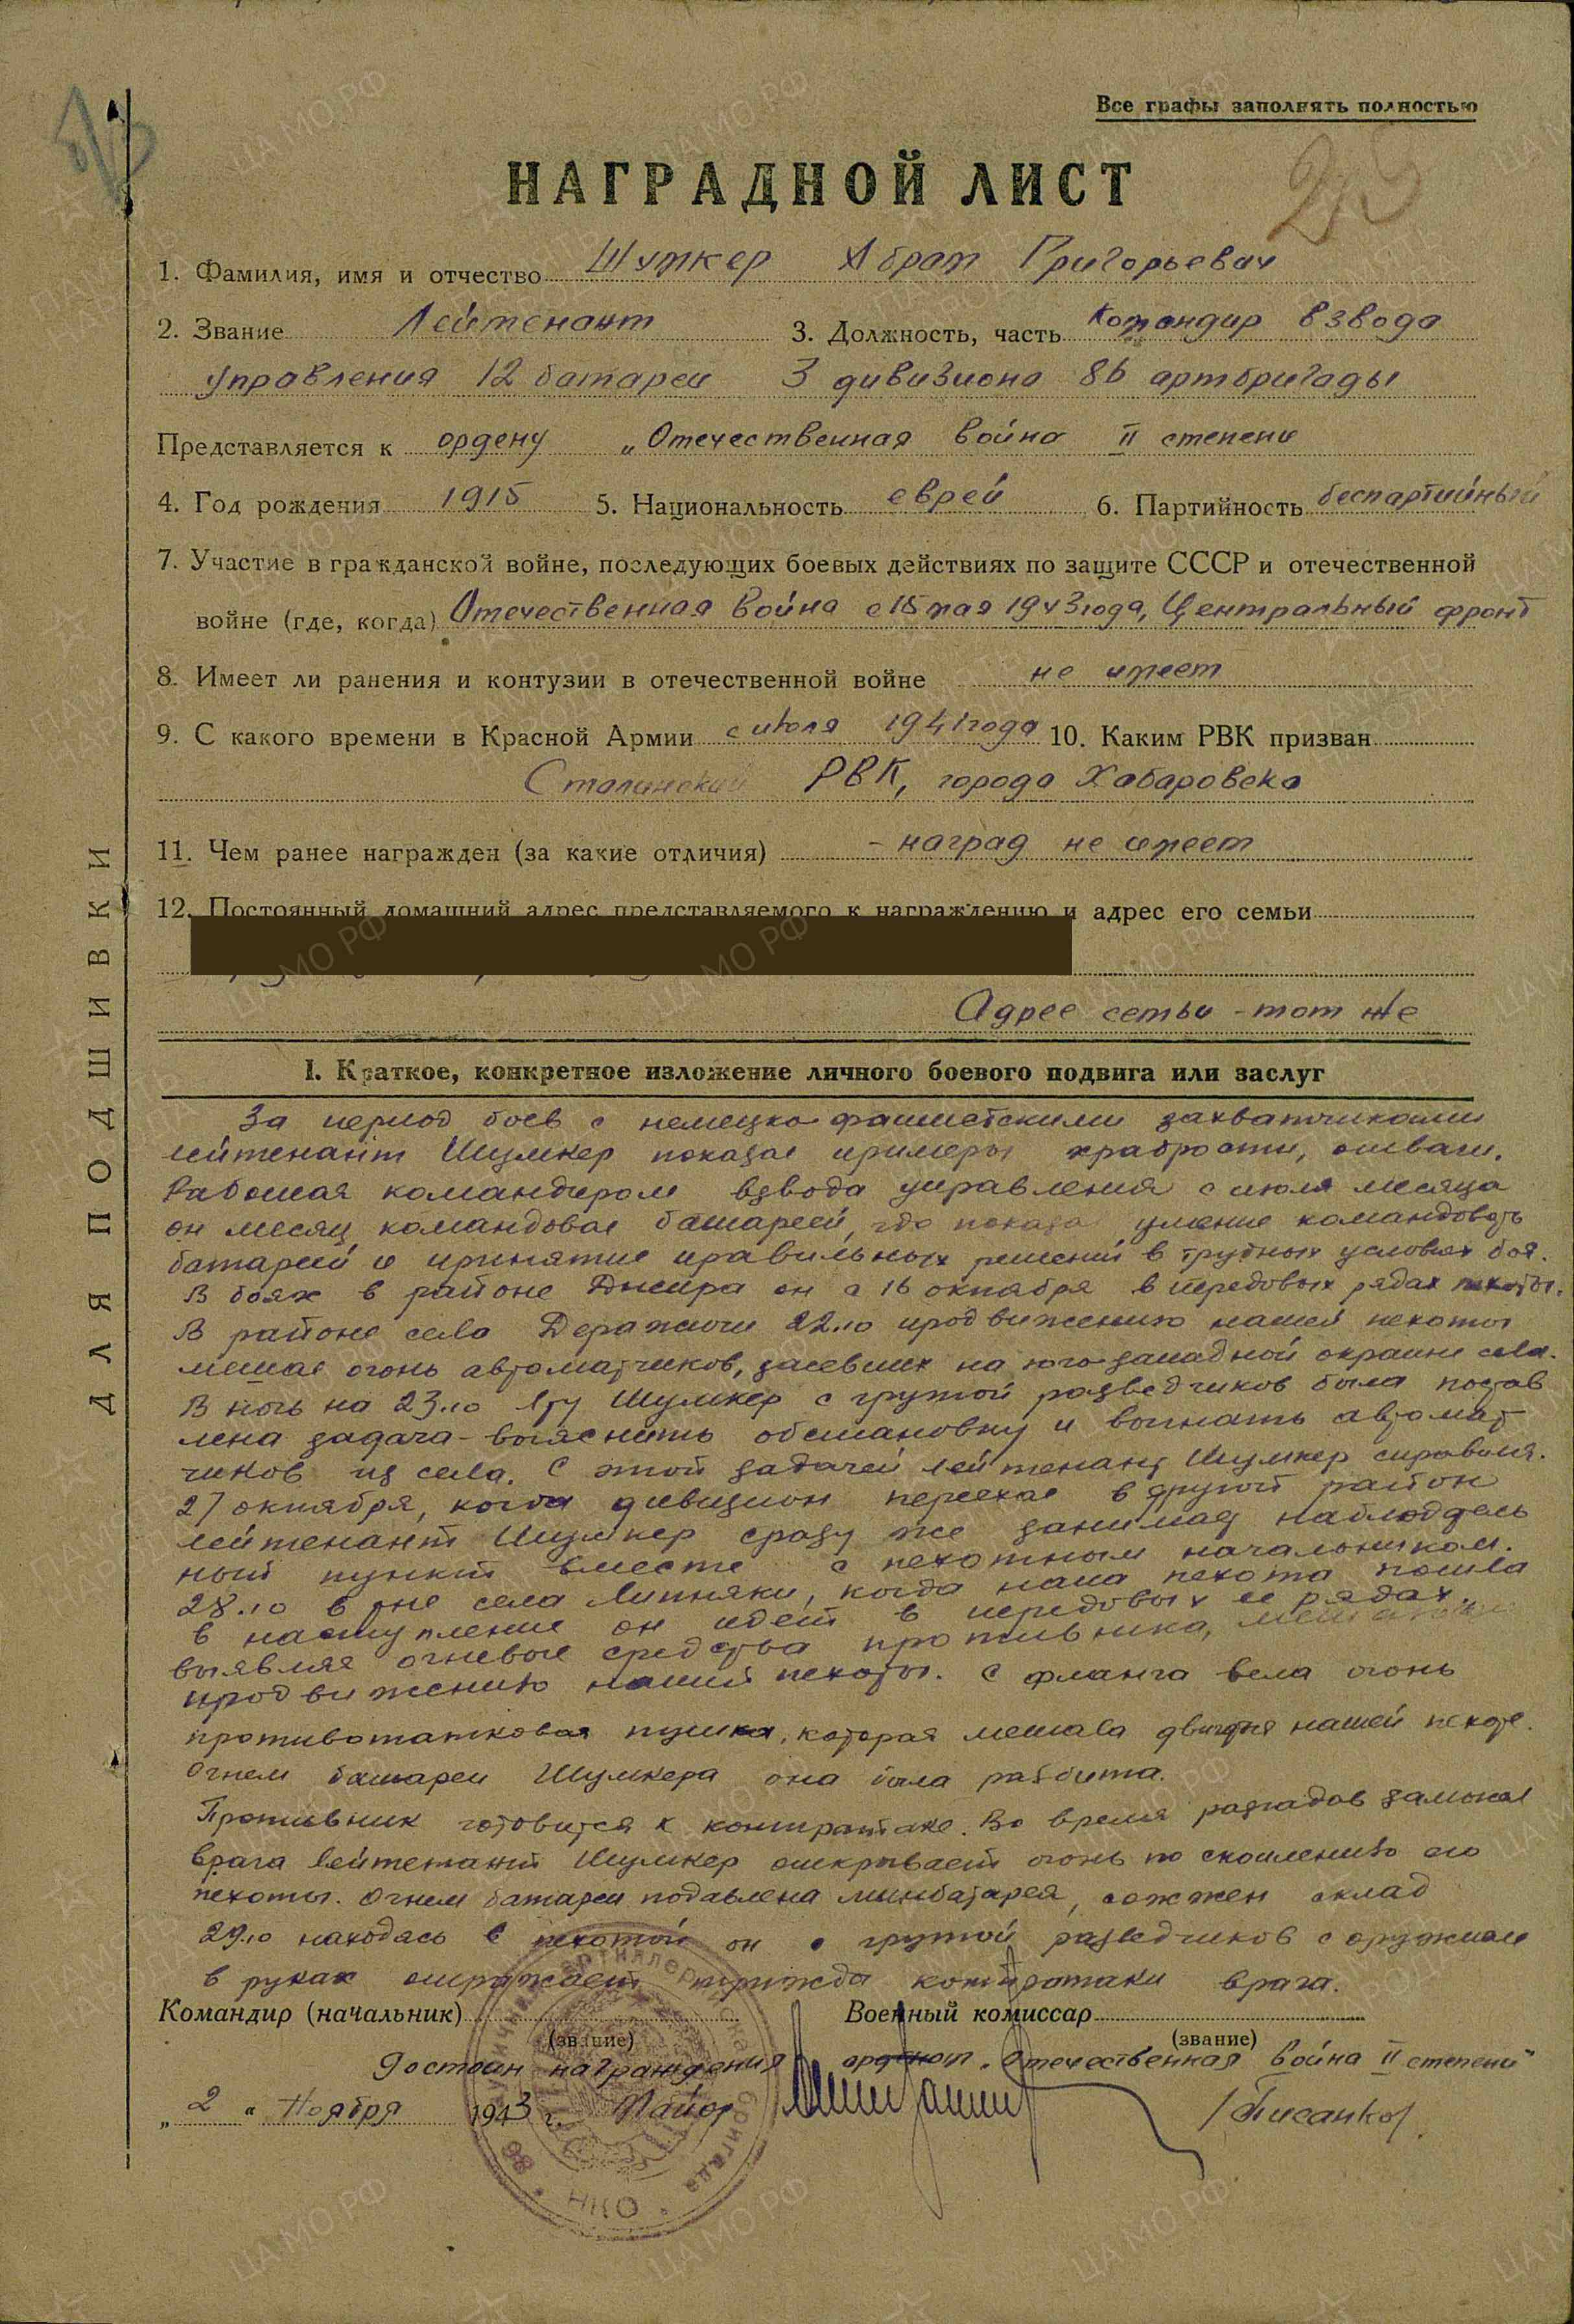 Все графы заполнять полностью
25
НАГРАДНОЙ ЛИСТ
1. Фамилия, имя и отчество Шумкер Абрам Григорьевич
2. Звание Лейтенант 3. Должность, часть Командир взвода
управления 12 батареи 3 дивизиона 86 артбригады
Представляется к ордену „Отечественная война II степени
4. Год рождения 1915 5. Национальность еврей 6. Партийность беспартийный
7. Участие в гражданской войне, последующих боевых действиях по защите СССР и отечественной
войне (где, когда) Отечественная война с 15 мая 1943 года, Центральный фронт
8. Имеет ли ранения и контузии в отечественной войне не имеет
9. С какого времени в Красной Армии с июля 1941 года 10. Каким РВК призван
Сталинский РВК, города Хабаровска
11. Чем ранее награжден (за какие отличия) - наград не имеет
12. Постоянный домашний адрес представляемого к награждению и адрес его семьи
Адрес семьи - тот же
ДЛЯ ПОДШИВКИ
I. Краткое, конкретное изложение личного боевого подвига или заслуг
За период боев с немецко-фашистскими захватчиками
лейтенант Шумкер показал примеры храбрости, отваги.
Работая командиром взвода управления с июля месяца
он месяц командовал батареей, где показал умение командовать
батареей и принятие правильных решений в трудных условиях боя.
В боях в районе Днепра он с 16 октября в передовых рядах пехоты.
В районе села Деражичи 22.10 продвижению нашей пехоты
мешал огонь автоматчиков, засевших на юго-западной окраине села.
В ночь на 23.10 л-ту Шумкер с группой разведчиков была постав
лена задача - выяснить обстановку и выгнать автомат
чиков из села. С этой задачей лейтенант Шумкер справился.
27 октября, когда дивизион переехал в другой район
лейтенант Шумкер сразу же занимает наблюдатель
ный пункт вместе с пехотным начальником.
28.10 в р-не села Липняки, когда наша пехота пошла
в наступление он идет в передовых ее рядах,
выявляя огневые средства противника, мешающие
продвижению нашей пехоты. С фланга вела огонь
противотанковая пушка, которая мешала двигаться нашей пехоте.
Огнем батареи Шумкера она была разбита.
Противник готовится к контратаке. Во время разгадав замысел
врага лейтенант Шумкер открывает огонь по скоплению его
пехоты. Огнем батареи подавлена минбатарея, сожжен склад
29.10 находясь с пехотой он с группой разведчиков с оружием
в руках отражает трижды контратаки врага.
Командир (начальник) Военный комиссар
(звание) (звание)
Достоин награждения орденом „Отечественная война II степени"
„2" Ноября 1943 г. Майор /Писанко/
артиллерийская бригада
86 НКО
ЦА МО РФ